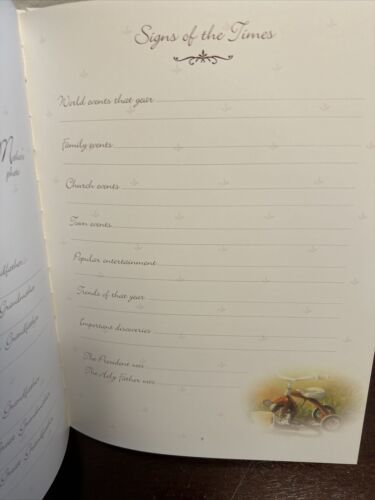 Signs of the Times
World events that year
Family events
Church events
Town events
Popular entertainment
Trends of that year
Important discoveries
The President was
The Holy Father was
Grandmother
Grandmother
Grandfather